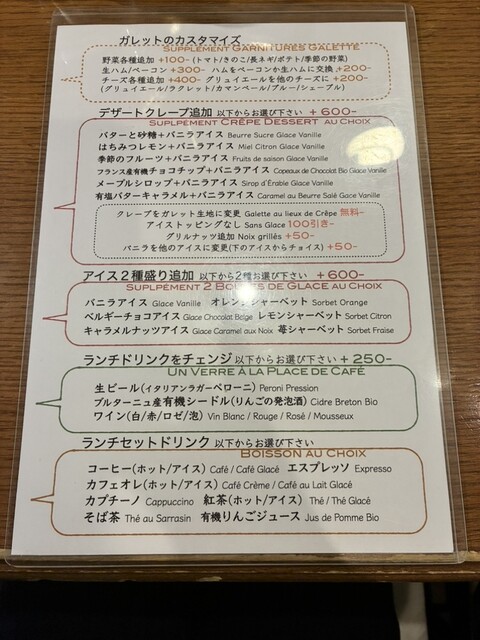 ガレットのカスタマイズ
Supplément Garnitures Galette
野菜各種追加 +100- (トマト/きのこ/長ネギ/ポテト/季節の野菜)
生ハム/ベーコン +300- ハムをベーコンか生ハムに交換 +200-
チーズ各種追加 +400- グリュイエールを他のチーズに +200-
(グリュイエール/ラクレット/カマンベール/ブルー/シェーブル)
デザートクレープ追加 以下からお選び下さい +600-
Suplpément Crêpe Dessert au Choix
バターと砂糖+バニラアイス Beurre Sucre Glace Vanille
はちみつレモン+バニラアイス Miel Citron Glace Vanille
季節のフルーツ+バニラアイス Fruits de saison Glace Vanille
フランス産有機チョコチップ+バニラアイス Copeaux de Chocolat Bio Glace Vanille
メープルシロップ+バニラアイス Sirop d'Érable Glace Vanille
有塩バターキャラメル+バニラアイス Caramel au Beurre Salé Gace Vanille
クレープをガレット生地に変更 Galette au lieux de Crêpe 無料-
アイストッピングなし Sans Glace 100引き-
グリルナッツ追加 Noix grillés +50-
バニラを他のアイスに変更(下のアイスからチョイス) +50-
アイス2種盛り追加 以下から2種お選び下さい +600-
Suplpément 2 Boules de Glace au Choix
バニラアイス Glace Vanille オレンジシャーベット Sorbet Orange
ベルギーチョコアイス Glace Chocolat Belge レモンシャーベット Sorbet Citron
キャラメルナッツアイス Glace Caramel aux Noix 苺シャーベット Sorbet Fraise
ランチドリンクをチェンジ 以下からお選び下さい + 250-
Un Verre à la Place de Café
生ビール(イタリアンラガーペローニ) Peroni Pression
ブルターニュ産有機シードル(りんごの発泡酒) Cidre Breton Bio
ワイン(白/赤/ロゼ/泡) Vin Blanc / Rouge / Rosé / Mousseux
ランチセットドリンク 以下からお選び下さい
Boisson au Choix
コーヒー(ホット/アイス) Café / Café Glacé エスプレッソ Expresso
カフェオレ(ホット/アイス) Café Crème / Café au Lait Glacé
カプチーノ Cappuccino 紅茶(ホット/アイス) Thé / Thé Glacé
そば茶 Thé au Sarrasin 有機りんごジュース Jus de Pomme Bio